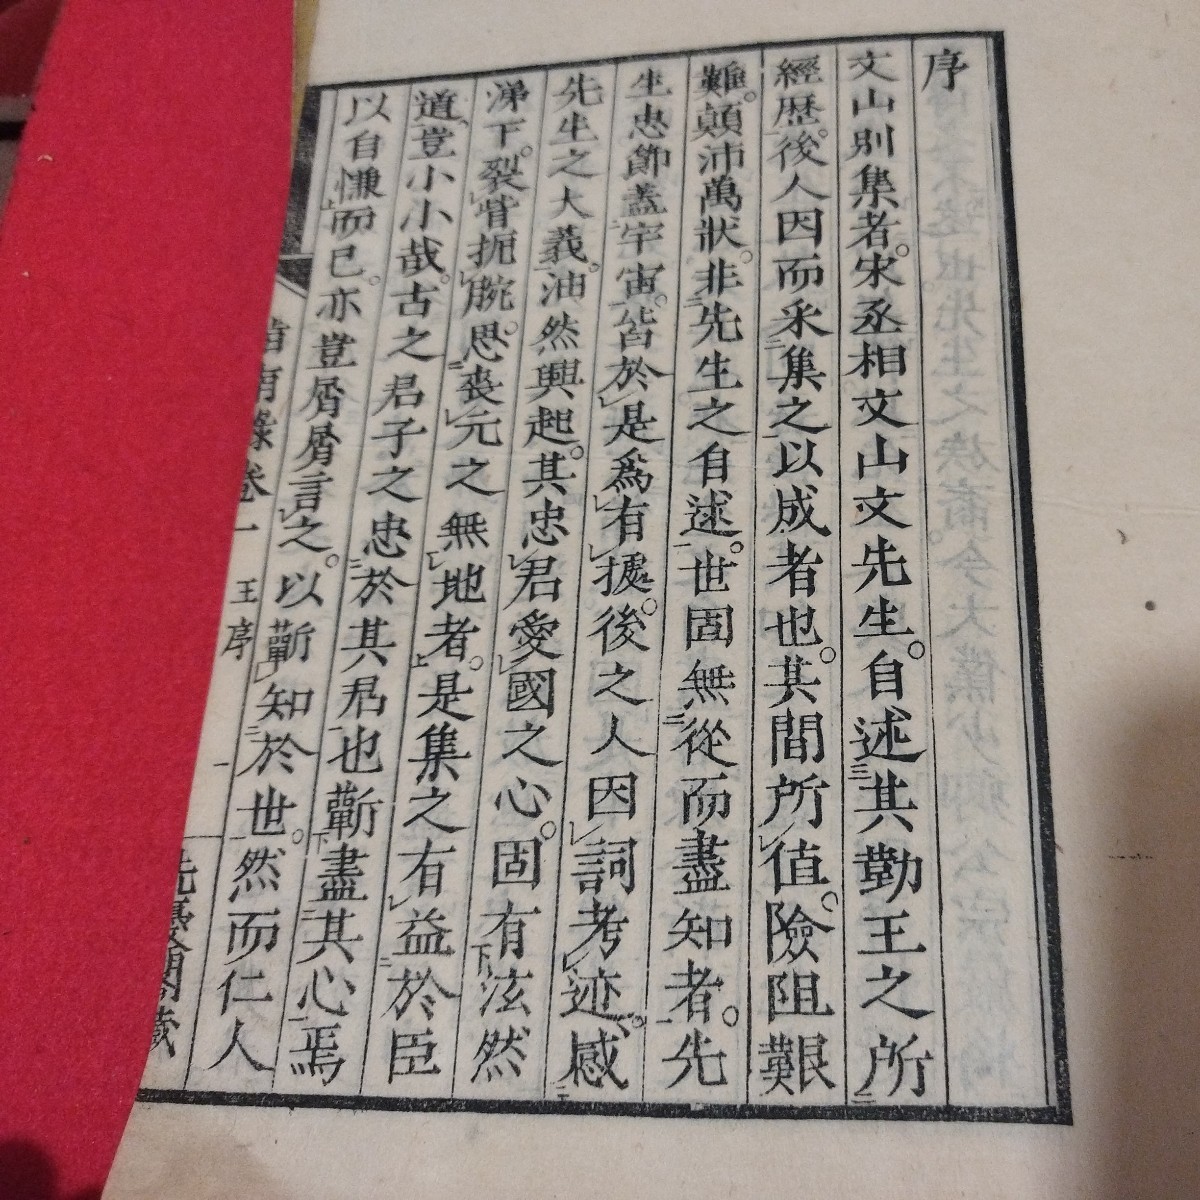 序
文山別集者。宋丞相文山文先生。自述其勤王之所
經歷。後人因而采集之以成者也。其間所値。險阻艱
難。顛沛萬狀。非先生之自述。世固無從而盡知者。先
生忠節蓋宇宙。皆於是爲有據。後之人因詞考迹、感
先生之大義。油然興起。其忠君愛國之心。固有泫然
涕下。裂眥扼腕。思喪元之無地者。是集之有益於臣
道、豈小小哉。古之君子之忠於其君也蘄盡其心焉
以自慊而已。亦豈屑屑言之。以蘄知於世。然而仁人
指南錄卷一 王序 一